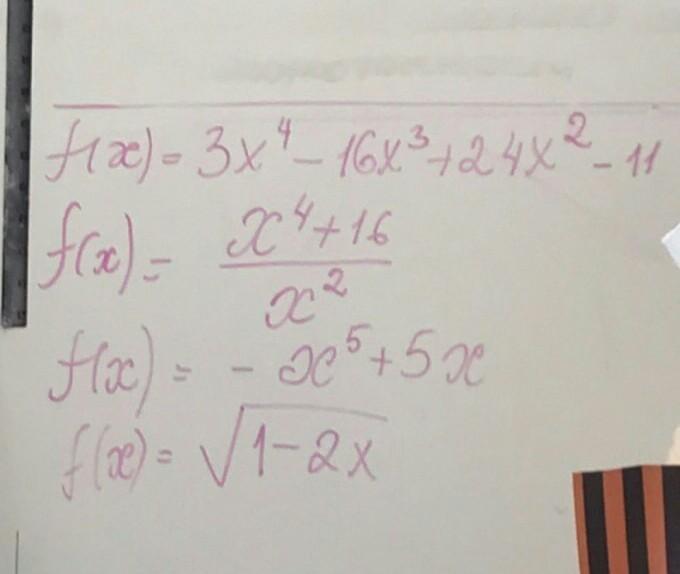 f(x) = 3x⁴ - 16x³ + 24x² - 11
f(x) = (x⁴ + 16)/x²
f(x) = - x⁵ + 5x
f(x) = √(1 - 2x)